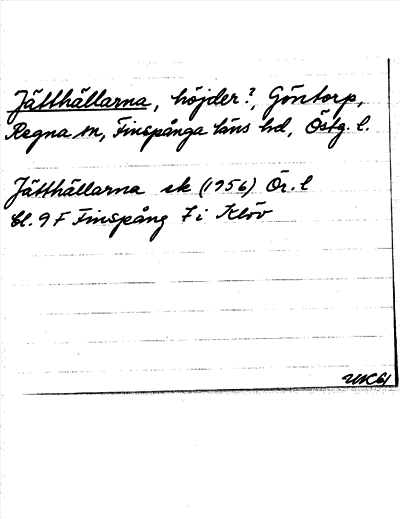 Jätthällarna, höjder?, Göntorp,
Regna sn, Finspånga läns hd, Östg. l.
Jätthällarna ek (1956) Ör. l
bl. 9 F Finspång 7 i Klöv